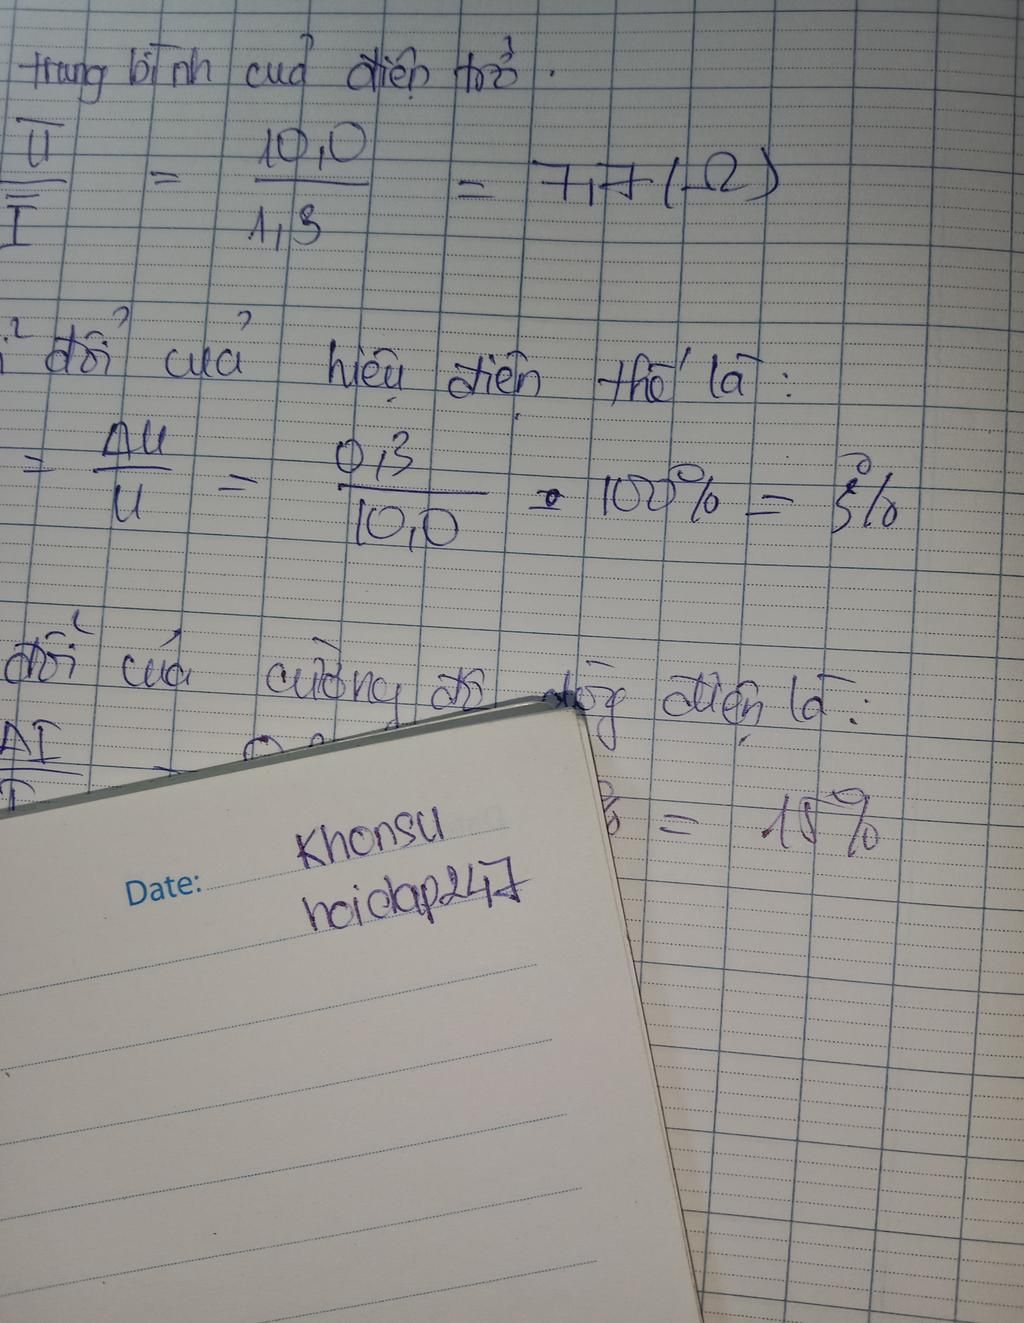 trung bình của điện trở.
U̅/I̅ = 10,0/1,3 = 7,7 (Ω)
đối của hiệu điện thế là:
= ΔU/U = 0,3/10,0 . 100% = 3%
đối của cường độ dòng điện là:
ΔI/I = % = 15%
Khonsu
Date:
hoidap247